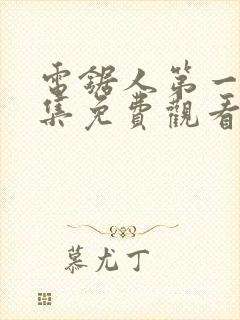 電鋸人第一
集免費觀看
慕尤丁